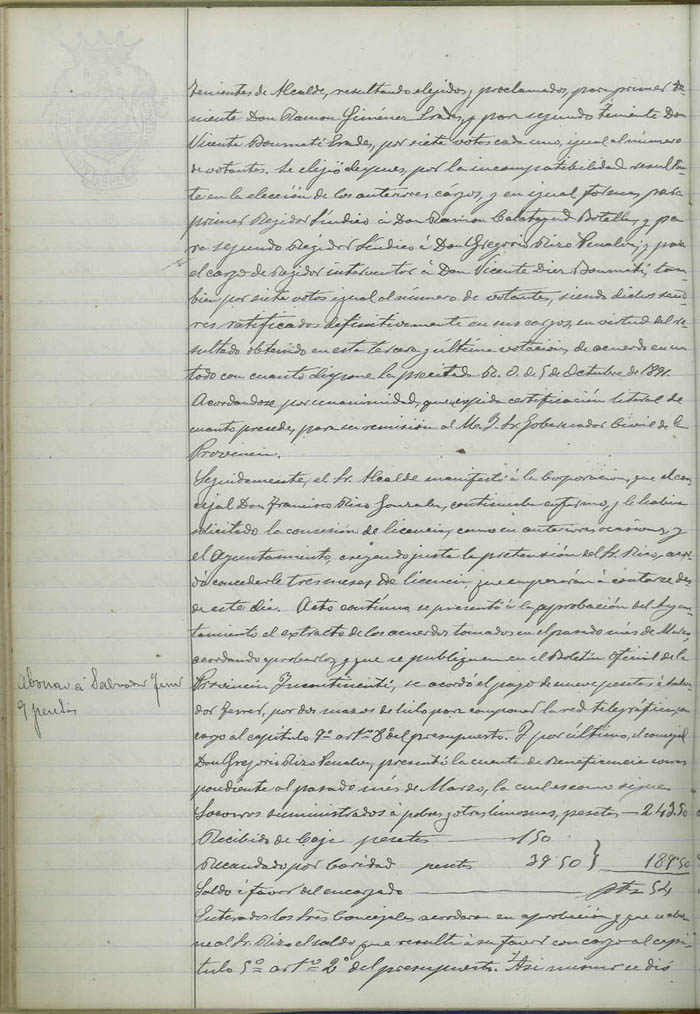 Tenientes de Alcalde, resultando elejidos y proclamados, para primer Te-
niente Don Ramon Giménez Erades, y para segundo Teniente Don
Vicente Boumatí Erades, por siete votos cada uno, igual al número
de votantes. Se elijió despues, por la incompatibilidad resultan-
te en la elección de los anteriores cárgos, y en igual forma, para
primer Regidor Síndico á Don Ramon Calatayud Botella, y pa-
ra segundo Regidor Síndico á Don Gregorio Rizo Penalva; y para
el cargo de Regidor interventor á Don Vicente Dier Boumatí; tam-
bien por siete votos igual al número de votantes, siendo dichos seño-
res ratificados definitivamente en sus cargos, en virtud del re-
sultado obtenido en esta tercera y última votación, de acuerdo en un
todo con cuanto dispone la precitada R. O. de 5 de Octubre de 1891.
Acordandose por unanimidad, que se expida certificación literal de
cuanto precede, para su remisión al M. I. Sr. Gobernador Civil de la
Provincia.
Seguidamente, el Sr. Alcalde manifestó á la Corporación, que el con-
cejal Don Francisco Rico Gonzalez, continuaba enfermo, y le habia
solicitado la concesión de licencia, como en anteriores ocasiones, y
el Ayuntamiento, creyendo justa la pretensión del Sr. Rico, acor-
dó concederle tres meses de licencia, que empezarán á contarse des-
de este dia. Acto contínuo, se presentó á la aprobación del Ayun-
tamiento el extracto de los acuerdos tomados en el pasado mes de Marzo,
acordando aprobarlos y que se publiquen en el Boletin Oficial de la
Provincia. Incontinenti, se acordó el pago de nueve pesetas á Salva-
dor Ferrer, por dos mazos de hilo para componer la red telegráfica, con
cargo al capítulo 9º artº 8º del presupuesto. Y por último, el concejal
Don Gregorio Rizo Penalva, presentó la cuenta de Beneficencia corres-
pondiente al pasado mes de Marzo, la cual es como sigue:
Socorros suministrados á pobres y otras limosnas, pesetas — 243'50
Recibido de Caja pesetas — 150
Recaudado por Caridad pesetas 39'50 } 189'50
Saldo á favor del encargado — pts = 54
Enterados los Sres Concejales acordaron su aprobación y que se abo-
ne al Sr. Rizo el saldo que resulta á su favor con cargo al capí-
tulo 5º artº 2º del presupuesto. Asi mismo se dió
Abonar á Salvador Ferrer
9 pesetas